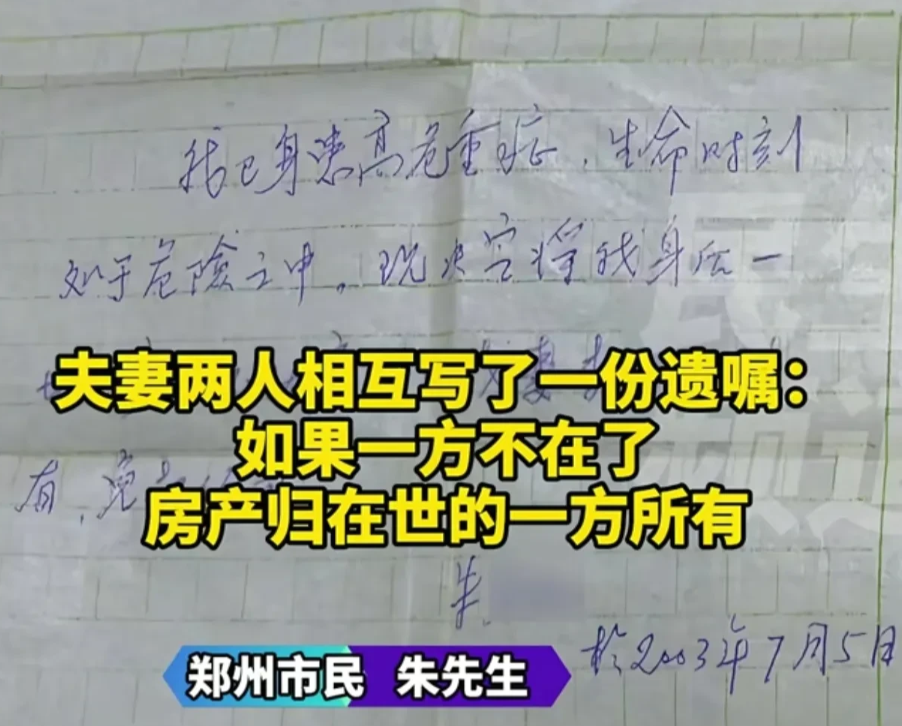 我已身患高危重症，生命时刻
处于危险之中。现决定将我身后一
夫妻两人相互写了一份遗嘱：
如果一方不在了
有，
房产归在世的一方所有
朱
於2003年7月5日
郑州市民 朱先生